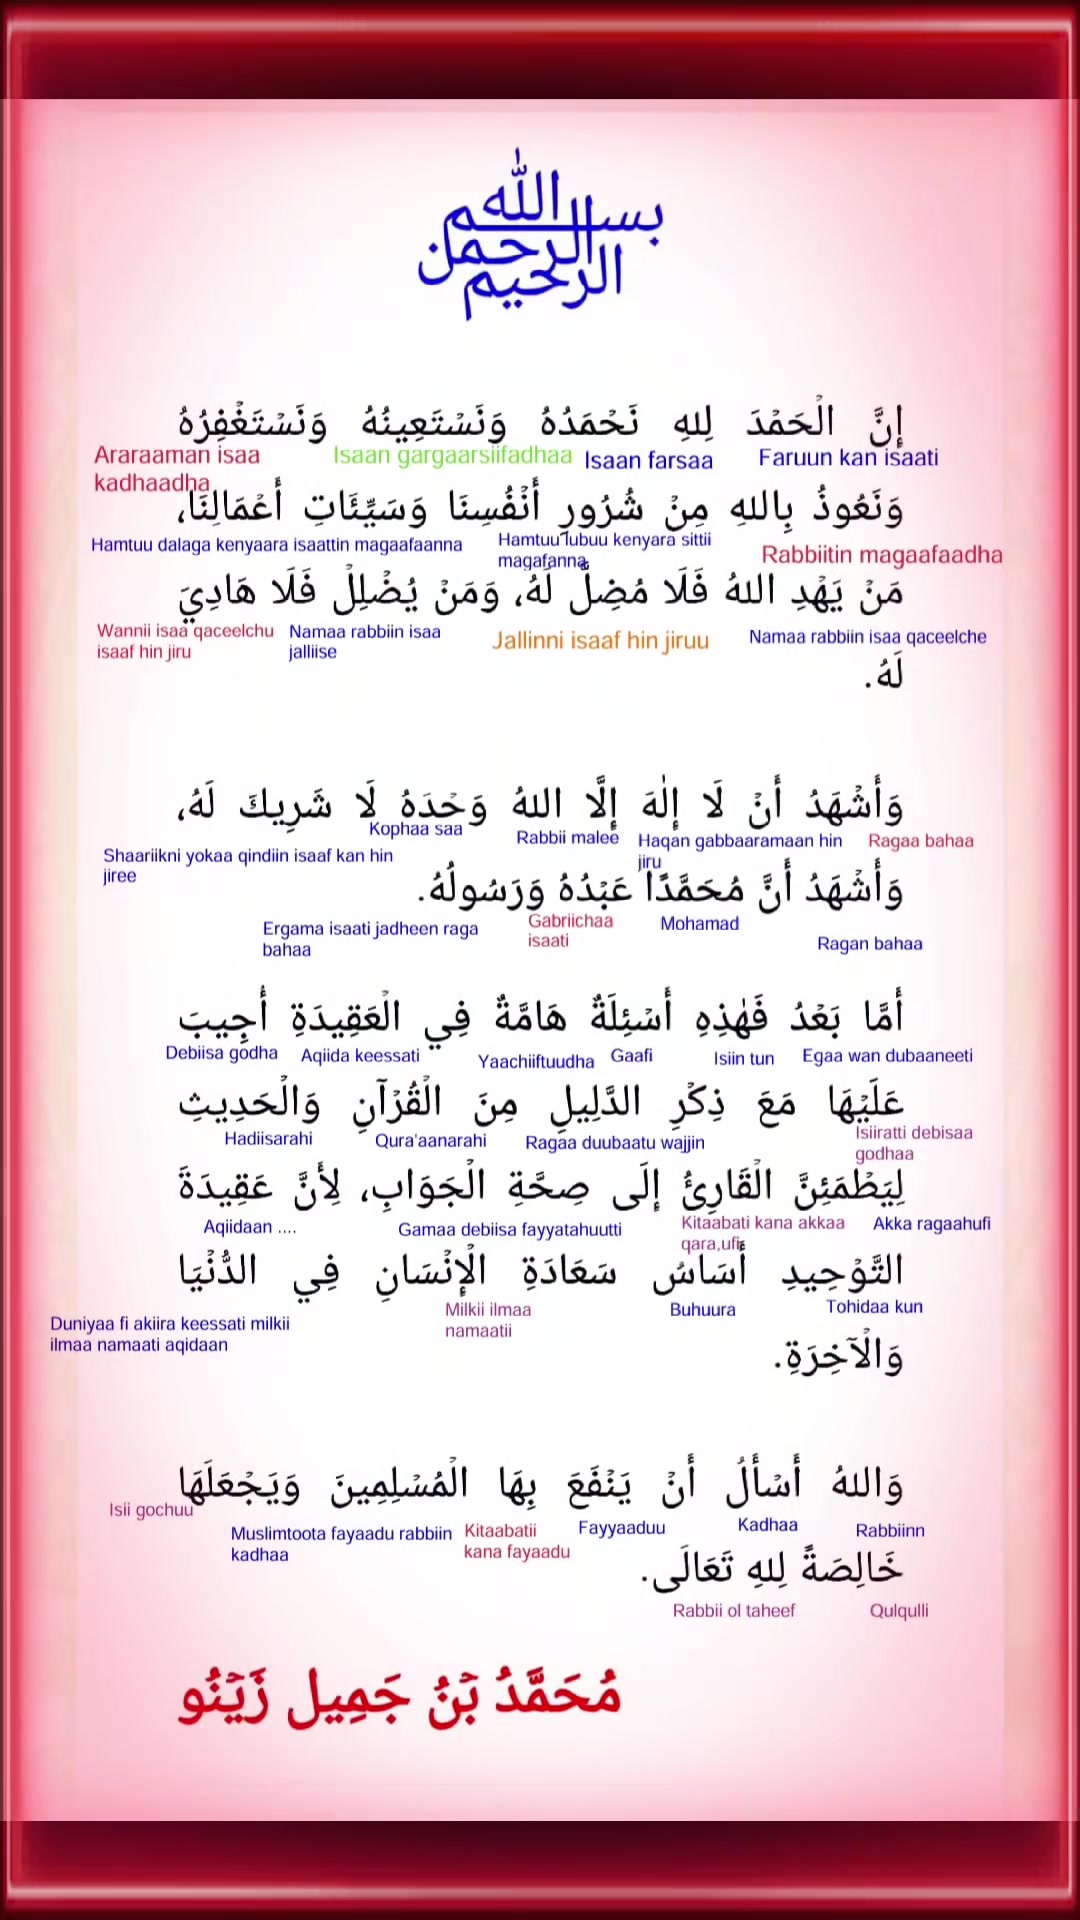 بسم الله
الرحمن
الرحيم
إِنَّ الْحَمْدَ لِلهِ نَحْمَدُهُ وَنَسْتَعِينُهُ وَنَسْتَغْفِرُهُ
Faruun kan isaati
Isaan farsaa
Isaan gargaarsiifadhaa
Araraaman isaa
kadhaadha
وَنَعُوذُ بِاللهِ مِنْ شُرُورِ أَنْفُسِنَا وَسَيِّئَاتِ أَعْمَالِنَا،
Rabbiitin magaafaadha
Hamtuu lubuu kenyara sittii
magafanna
Hamtuu dalaga kenyaara isaattin magaafaanna
مَنْ يَهْدِ اللهُ فَلَا مُضِلَّ لَهُ، وَمَنْ يُضْلِلْ فَلَا هَادِيَ
Namaa rabbiin isaa qaceelche
Jallinni isaaf hin jiruu
Namaa rabbiin isaa
jalliise
Wannii isaa qaceelchu
isaaf hin jiru
لَهُ.
وَأَشْهَدُ أَنْ لَا إِلٰهَ إِلَّا اللهُ وَحْدَهُ لَا شَرِيكَ لَهُ،
Ragaa bahaa
Haqan gabbaaramaan hin
jiru
Rabbii malee
Kophaa saa
Shaariikni yokaa qindiin isaaf kan hin
jiree
وَأَشْهَدُ أَنَّ مُحَمَّدًا عَبْدُهُ وَرَسُولُهُ.
Ragan bahaa
Mohamad
Gabriichaa
isaati
Ergama isaati jadheen raga
bahaa
أَمَّا بَعْدُ فَهٰذِهِ أَسْئِلَةٌ هَامَّةٌ فِي الْعَقِيدَةِ أُجِيبَ
Egaa wan dubaaneeti
Isiin tun
Gaafi
Yaachiiftuudha
Aqiida keessati
Debiisa godha
عَلَيْهَا مَعَ ذِكْرِ الدَّلِيلِ مِنَ الْقُرْآنِ وَالْحَدِيثِ
Isiiratti debisaa
godhaa
Ragaa duubaatu wajjin
Qura'aanarahi
Hadiisarahi
لِيَطْمَئِنَّ الْقَارِئُ إِلَى صِحَّةِ الْجَوَابِ، لِأَنَّ عَقِيدَةَ
Akka ragaahufi
Kitaabati kana akkaa
qara,ufi
Gamaa debiisa fayyatahuutti
Aqiidaan ....
التَّوْحِيدِ أَسَاسُ سَعَادَةِ الْإِنْسَانِ فِي الدُّنْيَا
Tohidaa kun
Buhuura
Milkii ilmaa
namaatii
Duniyaa fi akiira keessati milkii
ilmaa namaati aqidaan
وَالْآخِرَةِ.
وَاللهُ أَسْأَلُ أَنْ يَنْفَعَ بِهَا الْمُسْلِمِينَ وَيَجْعَلَهَا
Rabbiinn
Kadhaa
Fayyaaduu
Kitaabatii
kana fayaadu
Muslimtoota fayaadu rabbiin
kadhaa
Isii gochuu
خَالِصَةً لِلهِ تَعَالَى.
Qulqulli
Rabbii ol taheef
مُحَمَّدُ بْنُ جَمِيل زَيْنُو